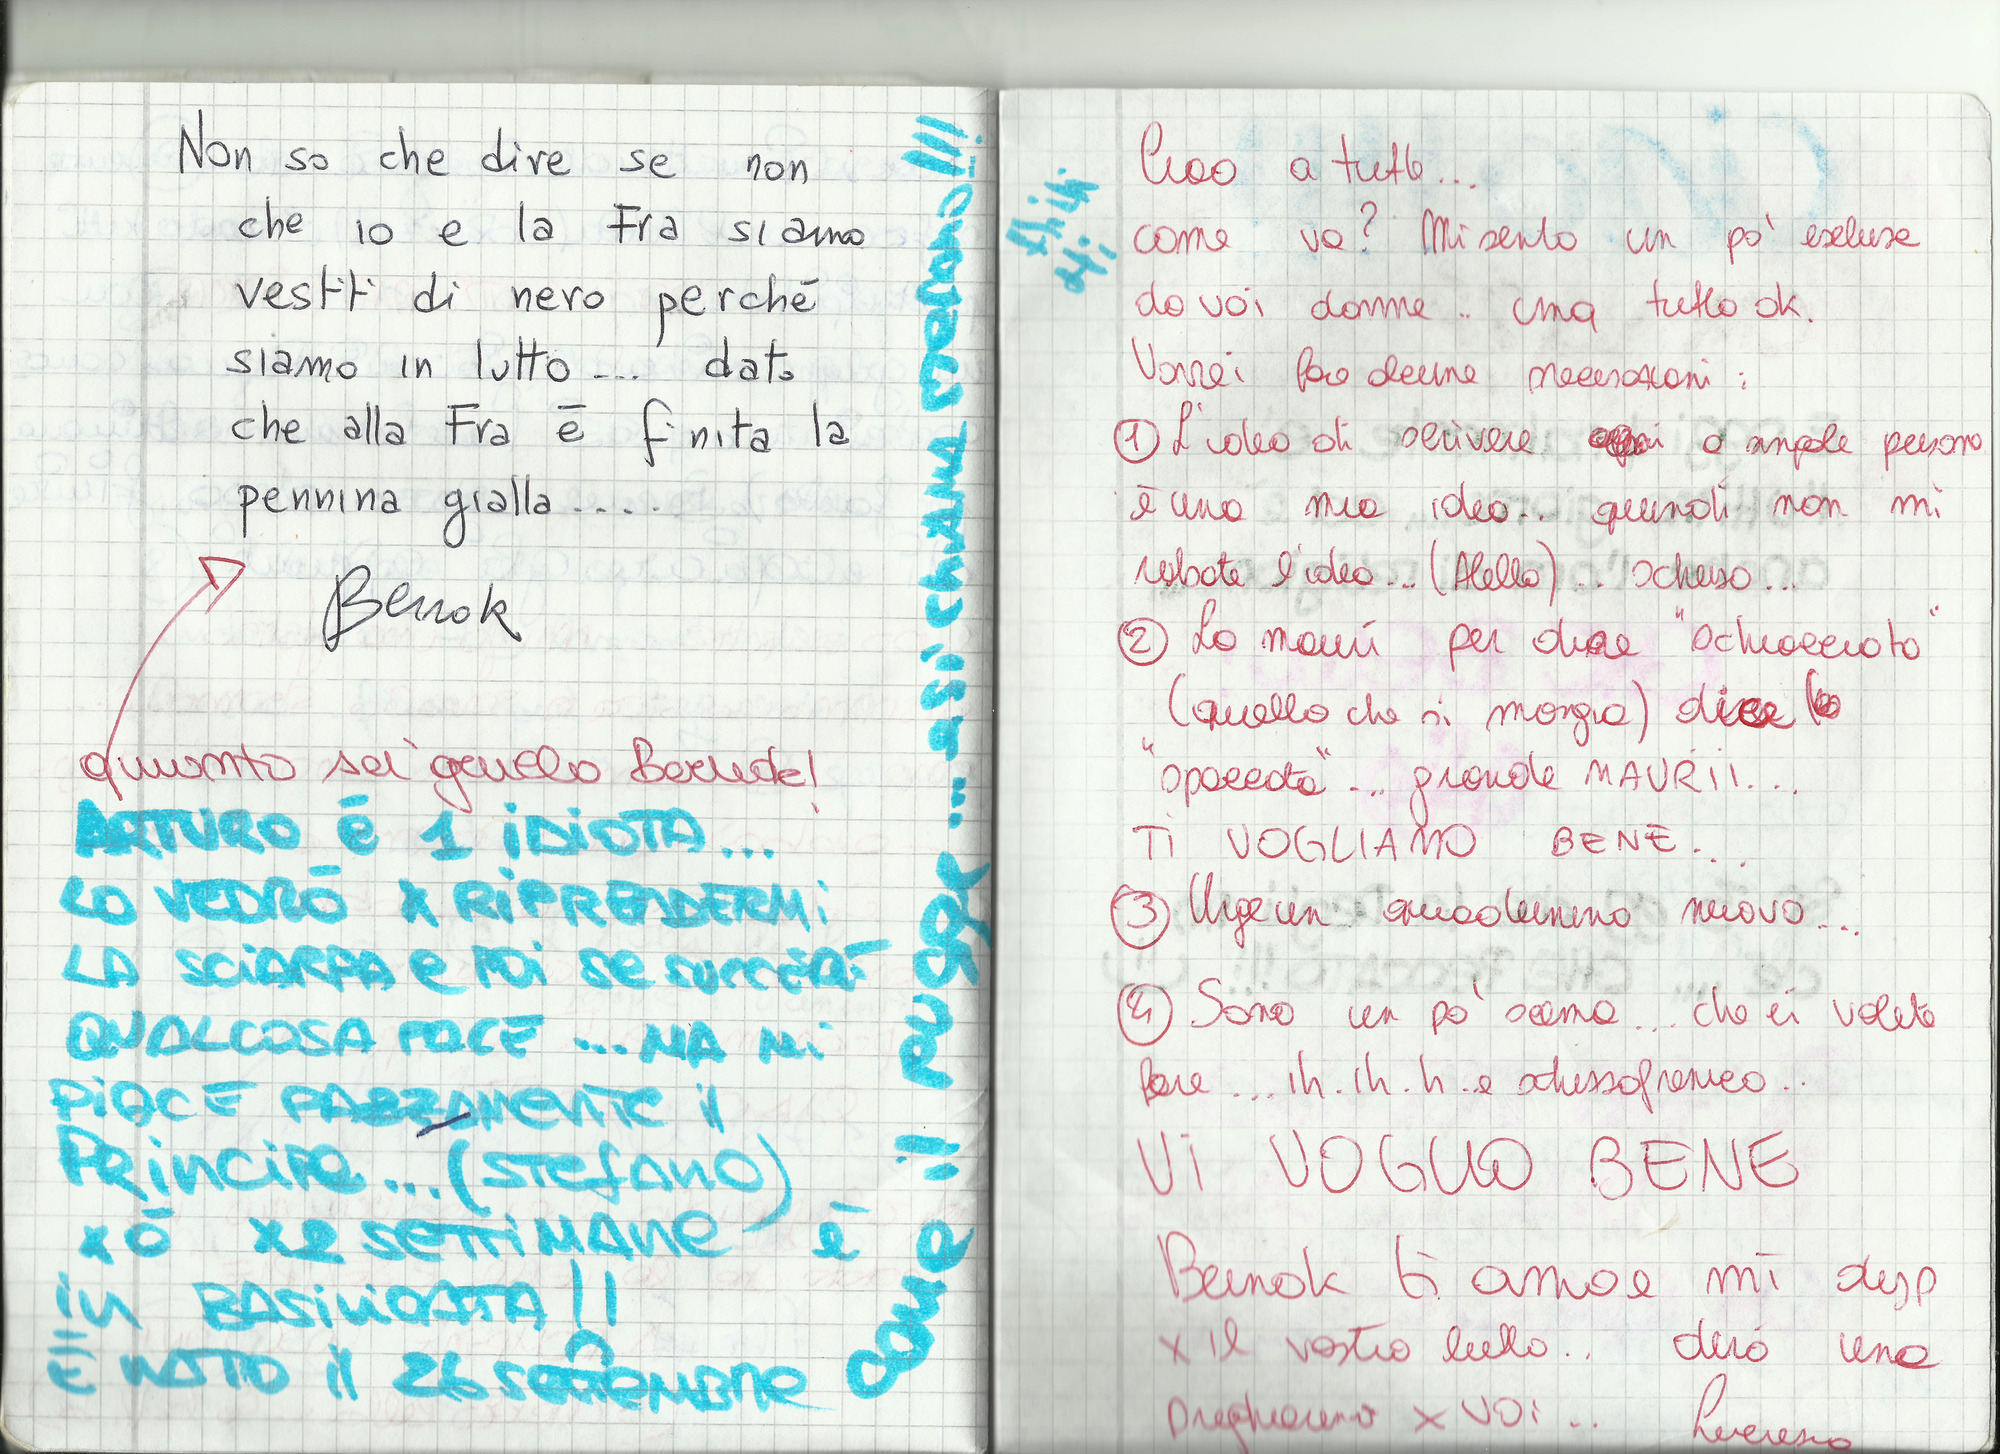 Non so che dire se non
che io e la Fra siamo
vestiti di nero perché
siamo in lutto.... dato
che alla Fra è finita la
pennina gialla.....
Benok
quanto sei
ARTURO è 1 IDIOTA...
LO VEDRÒ x RIPRENDERMI
LA SCIARPA e POI se succeRÀ
QUALCOSA PACE ...MA MI
PIACE PAZZAMENTE il
Principe...(STefANO)
xò x2 SETTIMANE è
in BASILICATA!!
È NATO il 26 seTTEMBRE
come il PUGGK... asi chiama verdano!!!
Ihihi
Ciao a tutte...
come va? Mi sento un pò esclusa
da voi donne.. ma tutto ok.
Vorrei fare alcune precisazioni:
① L'idea di scrivere a singole persone
è una mia idea... quindi non mi
rubate l'idea...(Alella).. scherzo...
② La mauri per dire "schiacciata"
(quella che si mangia) dice
"spaccata"... grande MAURII....
TI VOGLIAMO BENE....
③ Urge un quadernino nuovo....
④ Sono un pò scema... che ci volete
fare ...ih.ih.h.e schizzofrenica..
Vi VOGLIO BENE
Benok ti amo e mi disp
x il vostro lutto.. dirò una
preghierina x voi...